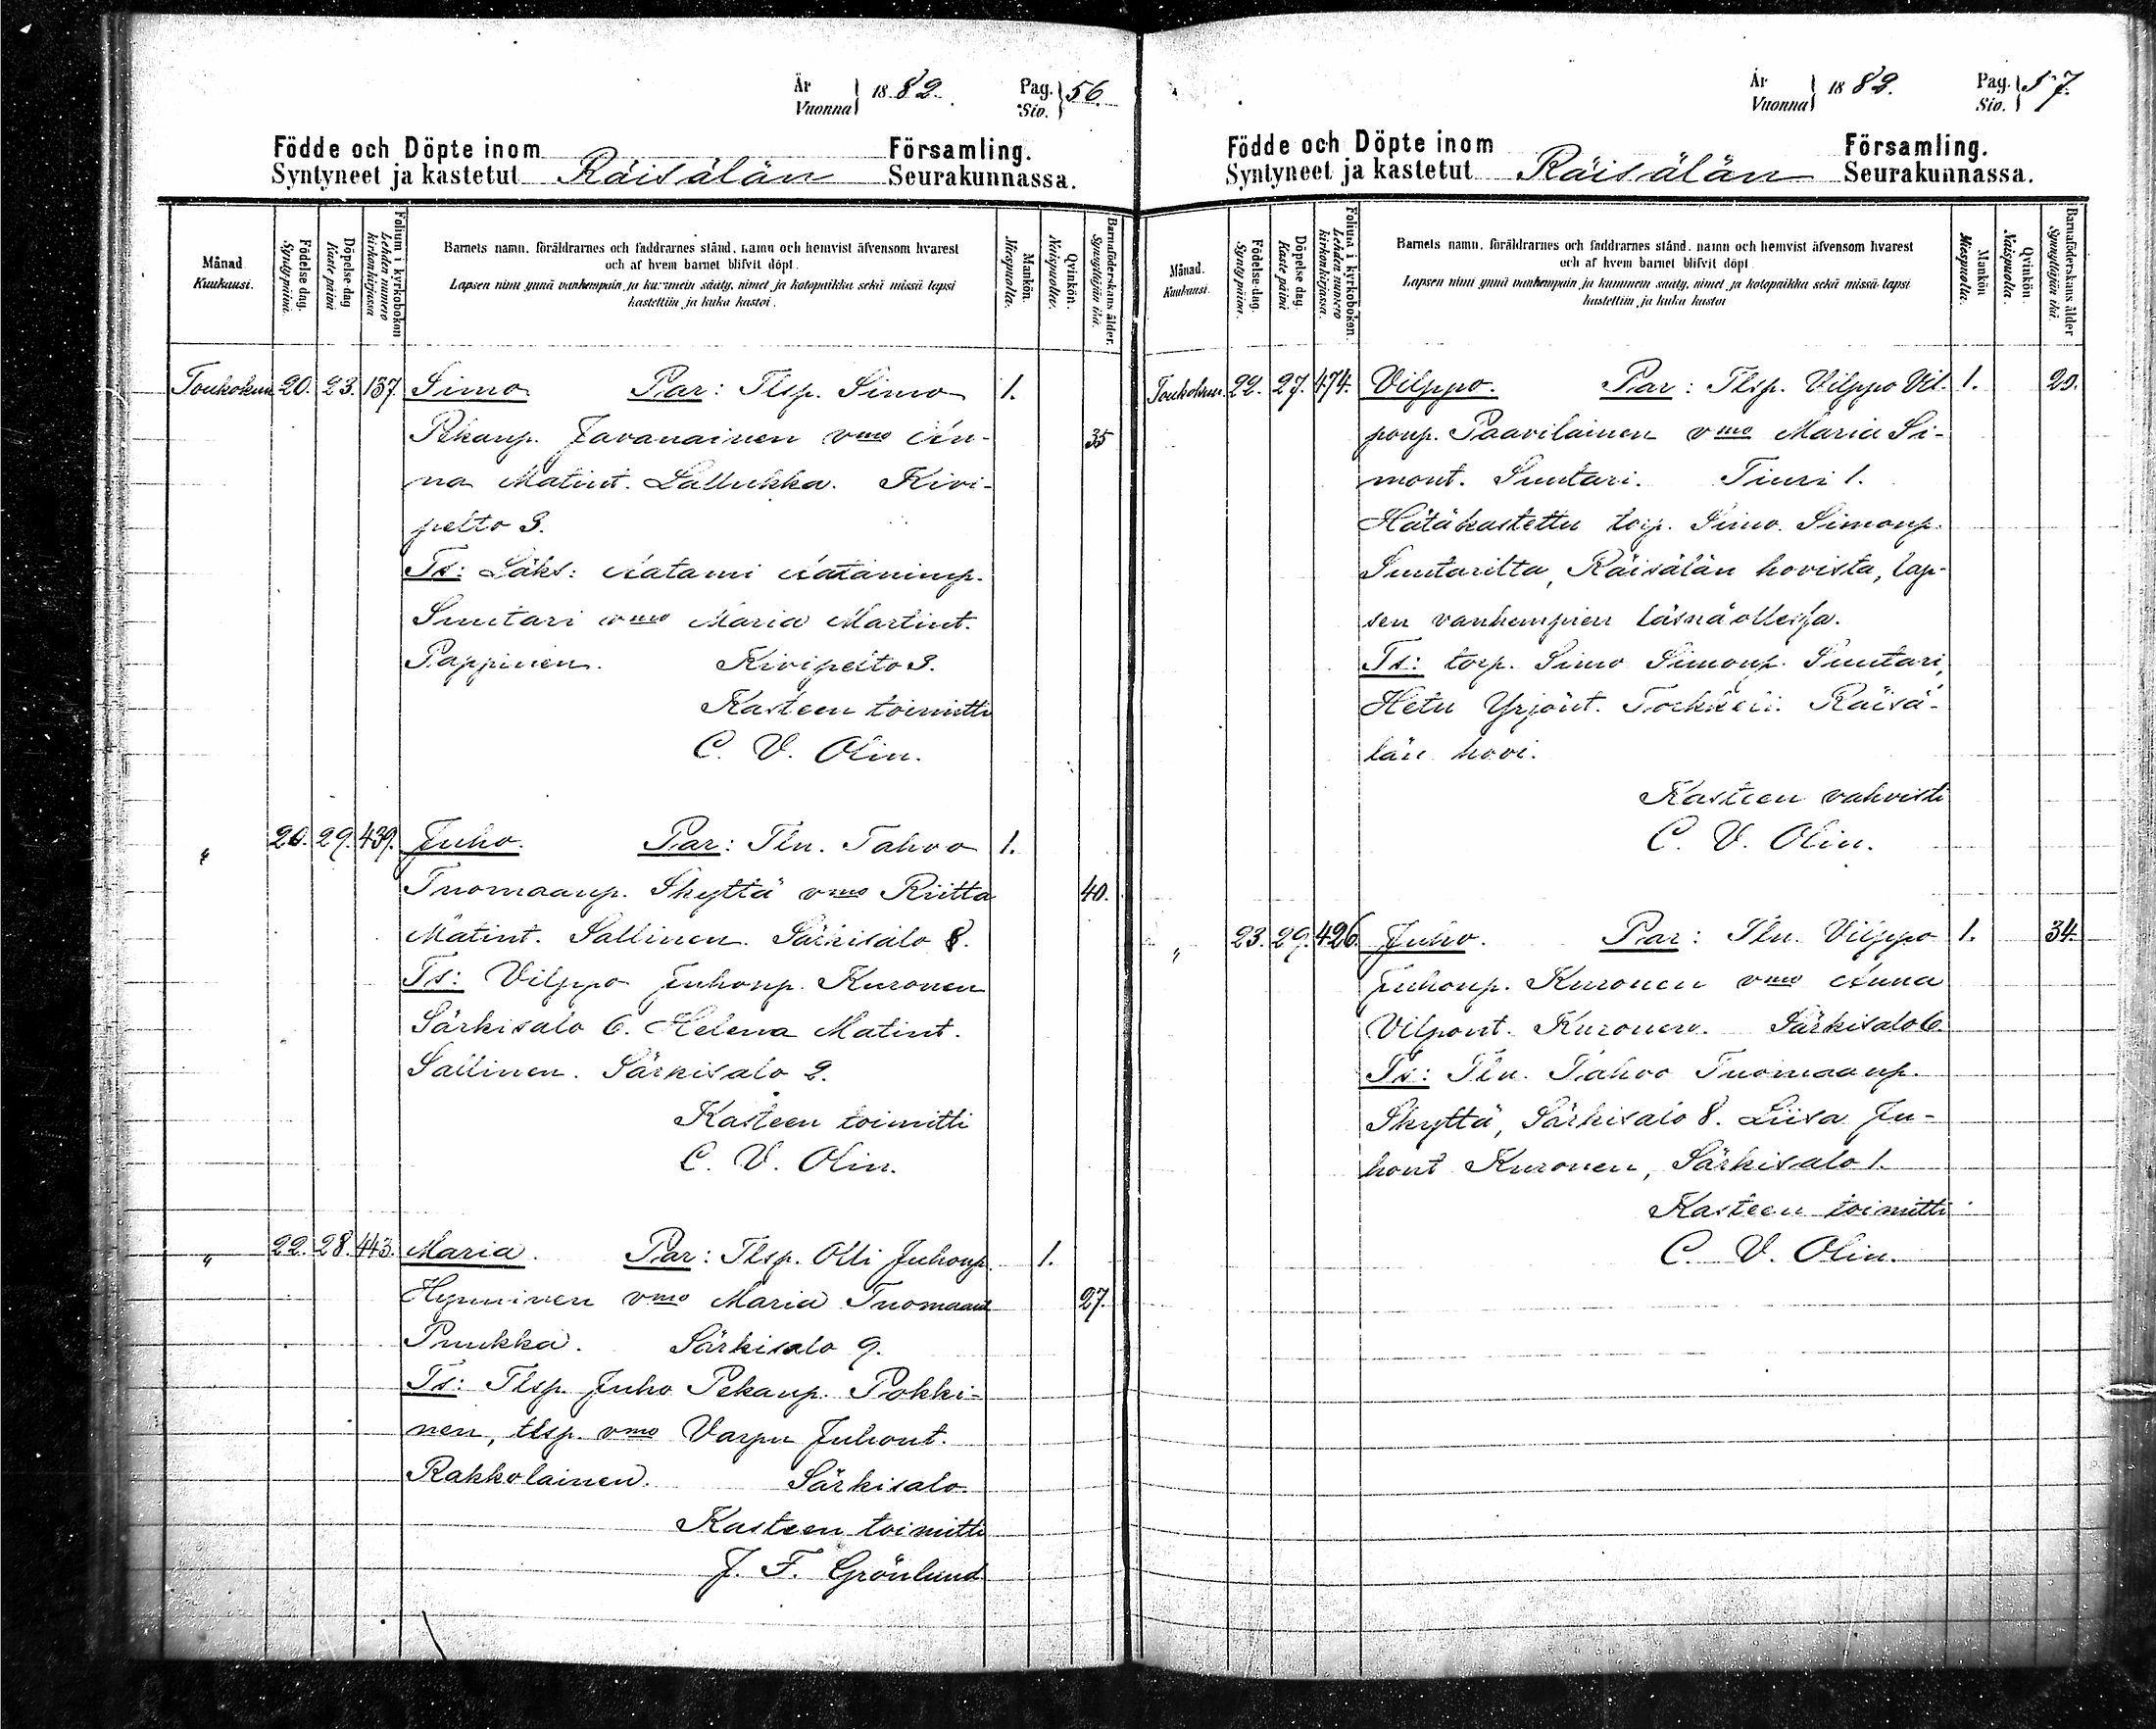 År
Vuonna 1882.
Pag.
Sio. 56.
Födde och Döpte inom Församling.
Syntyneet ja kastetut Räisälän Seurakunnassa.
Månad
Kuukausi.
Födelse dag.
Syntypäivä.
Döpelse dag
Kaste päivä
Folium i kyrkoboken
Lehden numero
kirkonkirjassa
Barnets namn, föräldrarnes och faddrarnes stånd, namn och hemvist äfvensom hvarest
och af hvem barnet blifvit döpt.
Lapsen nimi ynnä vanhempain ja kummein sääty, nimet ja kotopaikka sekä missä lapsi
kastettiin ja kuka kastoi.
Mankön.
Miespuolia.
Qvinkön.
Naispuolia.
Barnaföderskans ålder.
Synnyttäjän ikä.
Toukokuu 20. 23. 137. Simo Par: Tlsp. Simo 1.
Pekanp. Javanainen vmo An- 35
na Matint. Lallukka. Kivi-
pelto 3.
Ts: Läks: Aatami Aataminp.
Suutari vmo Maria Martint.
Pappinen. Kivipelto 3.
Kasteen toimitti
C. V. Olin.
" 20. 29. 439. Juho. Par: Tln. Tahvo 1.
Tuomaanp. Skyttä vmo Riitta 40.
Matint. Sallinen. Särkisalo 8.
Ts: Vilppo Juhonp. Kuronen
Särkisalo 6. Helena Matint.
Sallinen. Särkisalo 2.
Kasteen toimitti
C. V. Olin.
" 22. 28. 443. Maria. Par: Tlsp. Olli Juhonp. 1.
Hynninen vmo Maria Tuomaant 27.
Puukka. Särkisalo 9.
Ts: Tlsp. Juho Pekanp. Pokki-
nen, tlsp. vmo Varpu Juhont.
Rakkolainen. Särkisalo.
Kasteen toimitti
J. F. Grönlund
År
Vuonna 1882.
Pag.
Sio. 57.
Födde och Döpte inom Församling.
Syntyneet ja kastetut Räisälän Seurakunnassa.
Månad.
Kuukausi.
Födelse-dag.
Syntypäivä.
Döpelse dag
Kaste päivä
Folium i kyrkoboken.
Lehden numero
kirkonkirjassa.
Barnets namn, föräldrarnes och faddrarnes stånd, namn och hemvist äfvensom hvarest
och af hvem barnet blifvit döpt
Lapsen nimi ynnä vanhempain ja kummein sääty, nimet ja kotopaikka sekä missä lapsi
kastettiin ja kuka kastoi
Mankön
Miespuolia.
Qvinkön
Naispuolia.
Barnaföderskans ålder
Synnyttäjän ikä.
Toukokuu. 22. 27. 474. Vilppo. Par: Tlsp. Vilppo Vil- 1. 20.
ponp. Paavilainen vmo Maria Si-
mont. Suutari. Tiuri 1.
Hätäkastettu torp. Simo Simonp.
Suutarilta, Räisälän hovista, lap-
sen vanhempien läsnäollessa.
Ts: torp. Simo Simonp. Suutari,
Hetu Yrjönt. Torkkeli. Räisä-
län hovi.
Kasteen vahvisti
C. V. Olin.
" 23. 29. 426. Juho. Par: Tln. Vilppo 1. 34.
Juhonp. Kuronen vmo Anna
Vilpont. Kuronen. Särkisalo 6
Ts: Tln. Tahvo Tuomaanp.
Skyttä, Särkisalo 8. Liisa Ju-
hont Kuronen, Särkisalo 1.
Kasteen toimitti
C. V. Olin.